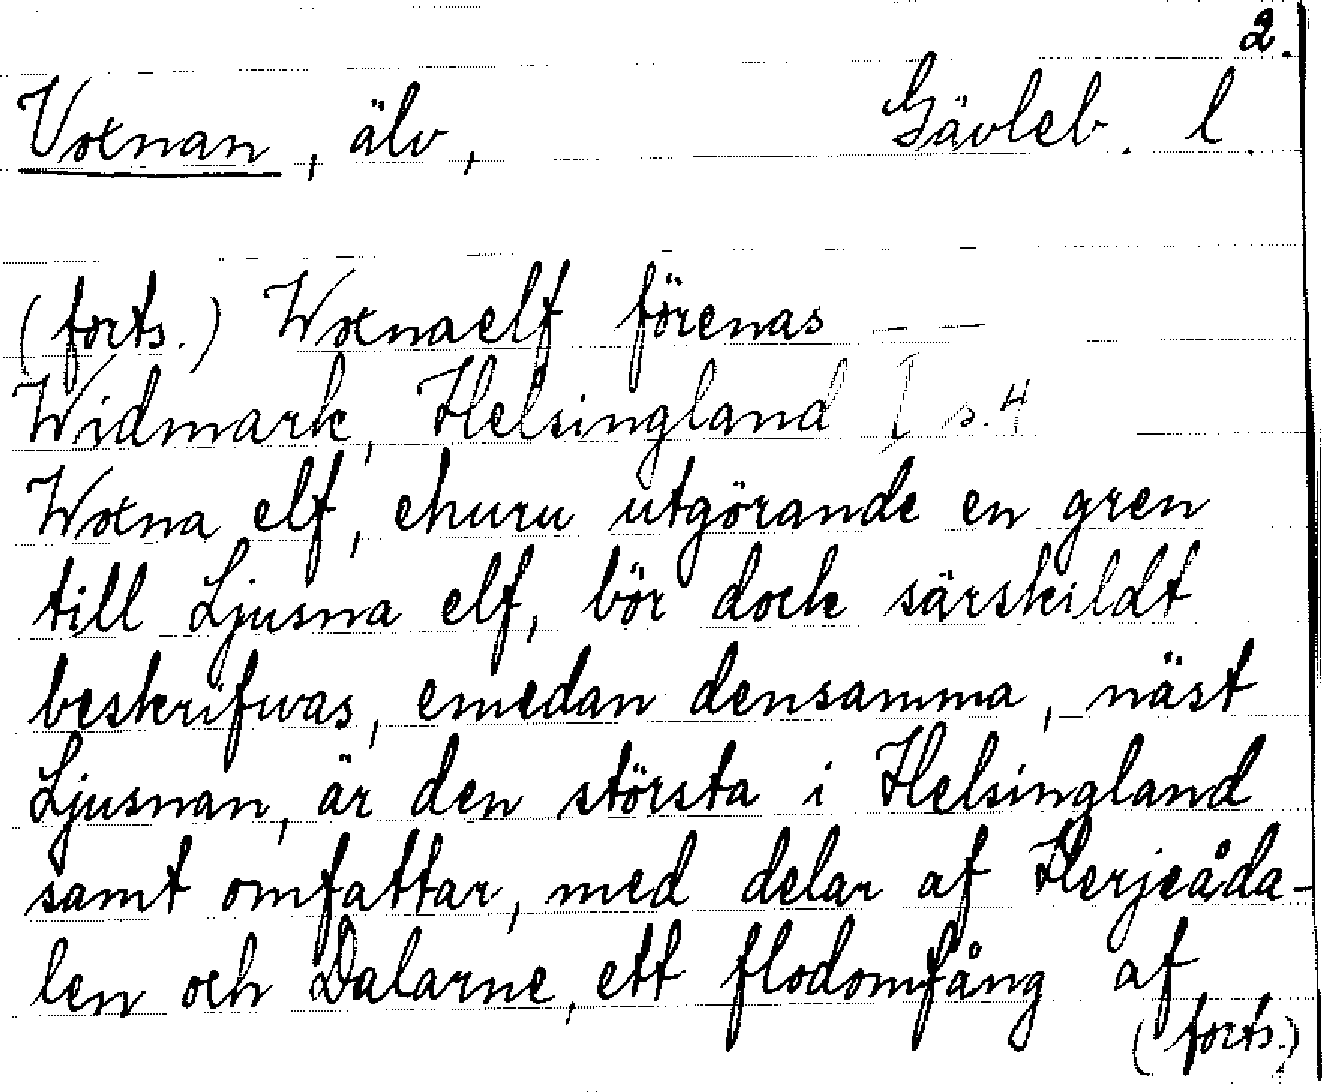 2.
Voxnan, älv, Gävleb. l.
(forts.) Woxnaelf förenas – –
Widmark, Helsingland I s. 4
Woxna elf, ehuru utgörande en gren
till Ljusna elf, bör dock särskildt
beskrifwas, emedan densamma, näst
Ljusnan, är den största i Helsingland
samt omfattar, med delar af Herjeåda-
len och Dalarne, ett flodomfång af
(forts.)